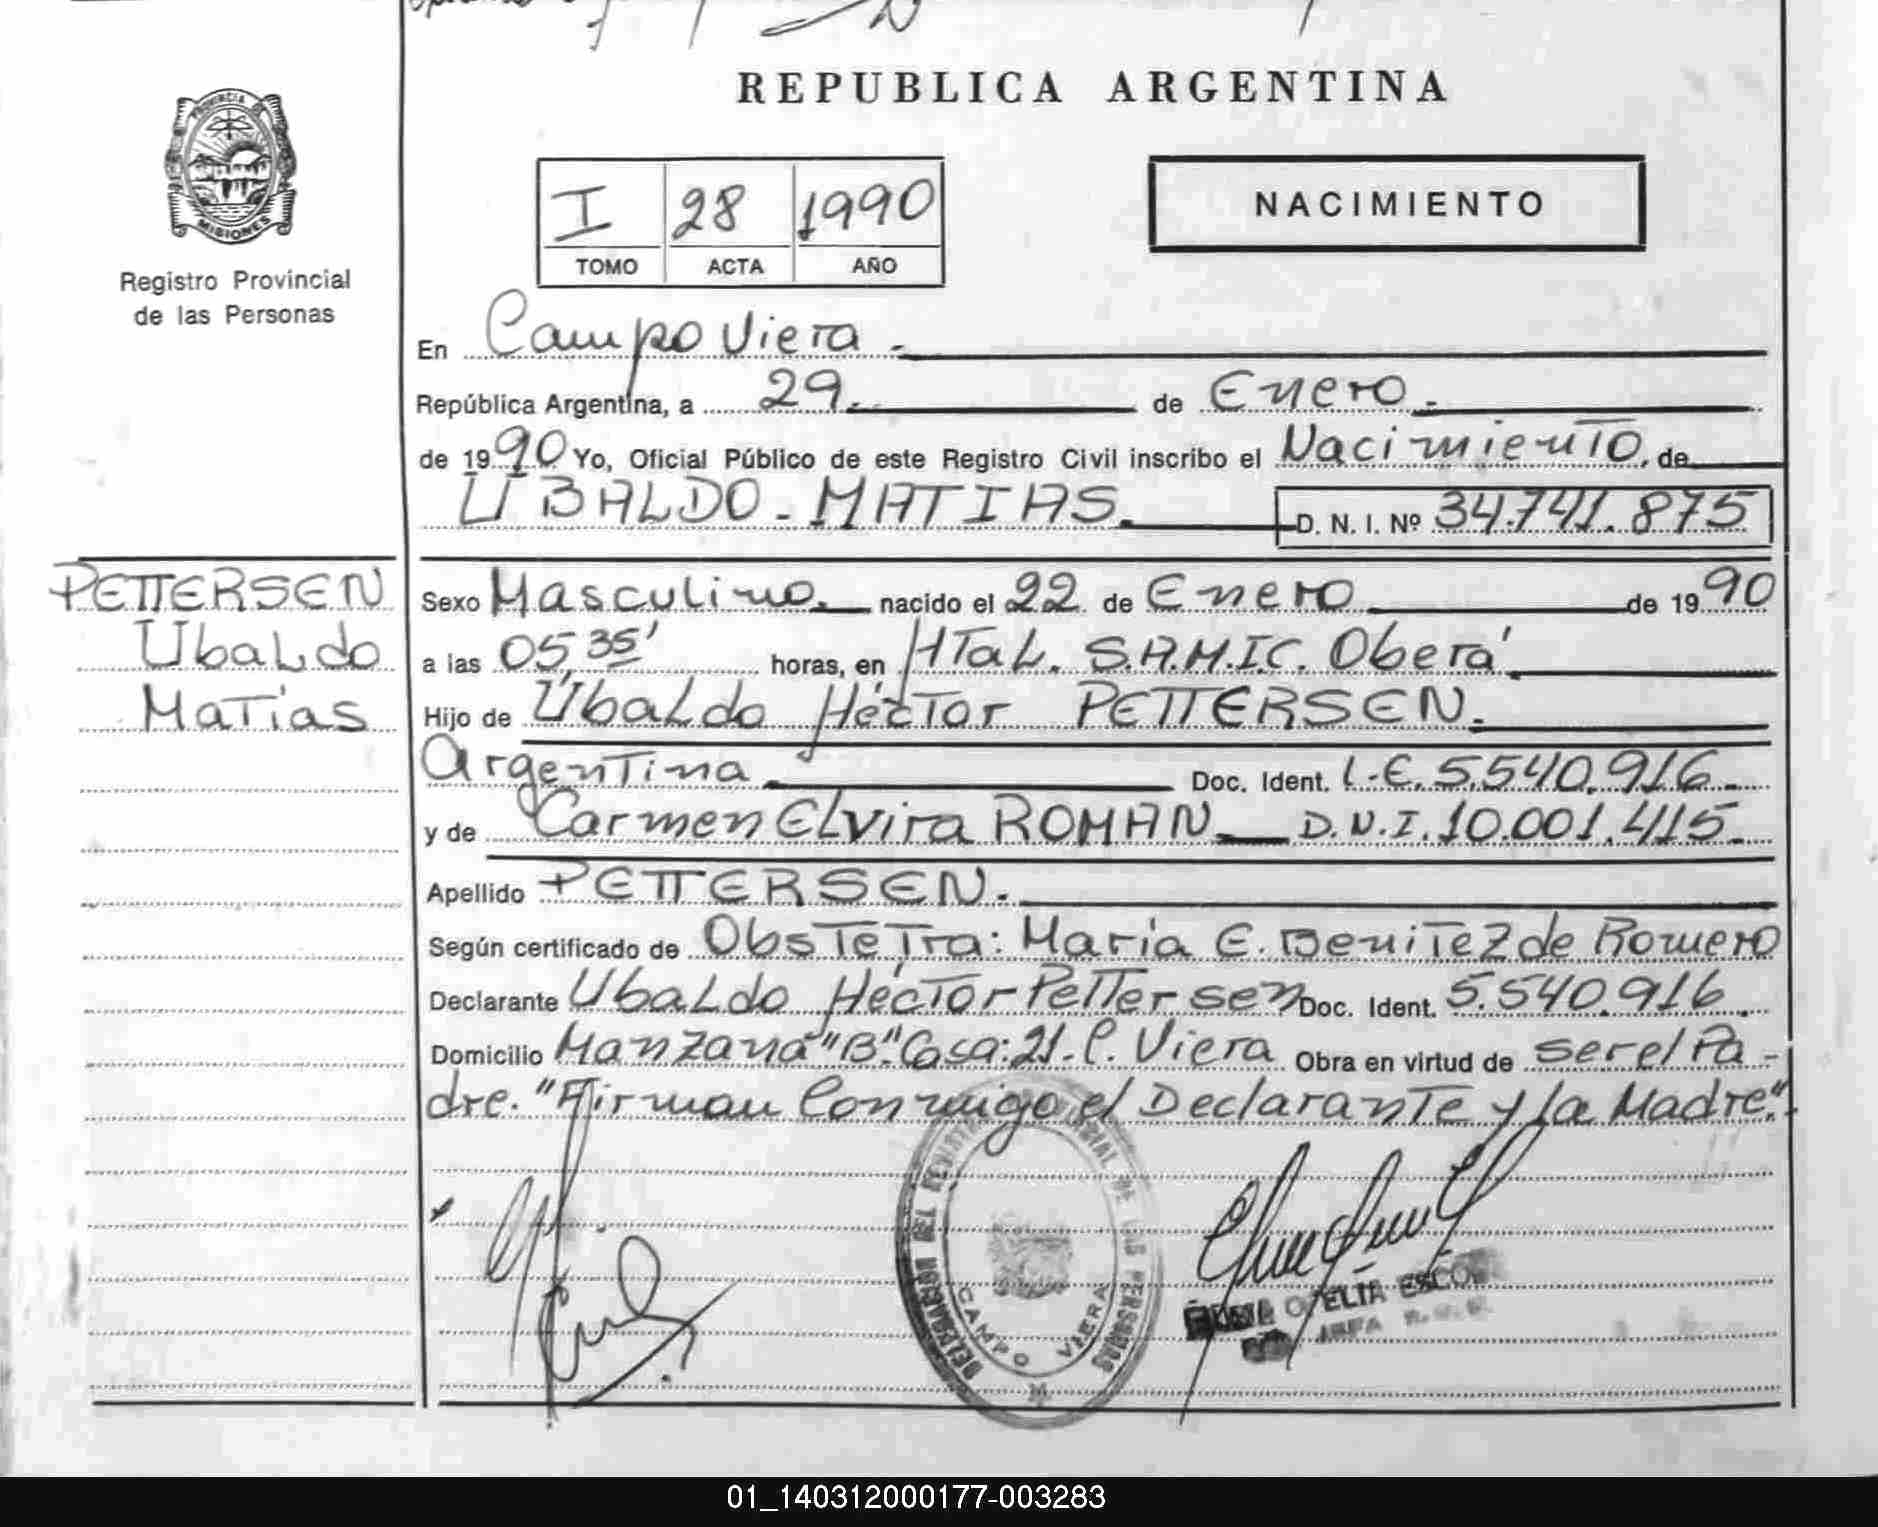 REPUBLICA ARGENTINA
PROVINCIA DE
MISIONES
Registro Provincial
de las Personas
I 28 1990
TOMO ACTA AÑO
NACIMIENTO
En Campo Viera.
República Argentina, a 29. de Enero.
de 1990 Yo, Oficial Público de este Registro Civil inscribo el Nacimiento, de
UBALDO - MATIAS. D. N. I. Nº 34.741.875
PETTERSEN
Ubaldo
Matías
Sexo Masculino. nacido el 22 de Enero de 1990
a las 05,35' horas, en HTaL. S.A.M.IC. Oberá
Hijo de Ubaldo Héctor PETTERSEN.
Argentina. Doc. Ident. L.E. 5.540.916.-
y de Carmen Elvira ROMAN D.N.I. 10.001.415.-
Apellido PETTERSEN.
Según certificado de Obstétra: María E. Benitez de Romero
Declarante Ubaldo Héctor Pettersen Doc. Ident. 5.540.916.
Domicilio Manzana "B". Casa: 21.- C. Viera Obra en virtud de ser el Pa-
dre. "Firman Conmigo el Declarante y la Madre".
DELEGACION DEL REGISTRO PROVINCIAL DE LAS PERSONAS
CAMPO VIERA
OFELIA
JEFA
01_140312000177-003283